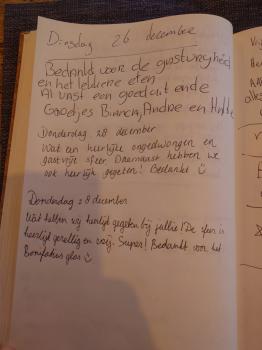 Dinsdag 26 december
Bedankt voor de gastvrijheid
en het lekkere eten
Al vast een goed uit ende
Groetjes Bianca, Andre en
Donderdag 28 december
Wat een heerlijke ongedwongen en
gastvrije sfeer. Daarnaast hebben we
ook heerlijk gegeten! Bedankt
Donderdag 28 december
Wat hebben wij heerlijk gegeten bij jullie! De sfeer is
heerlijk gezellig en vrij. Super! Bedankt voor het
Bonifatius glas